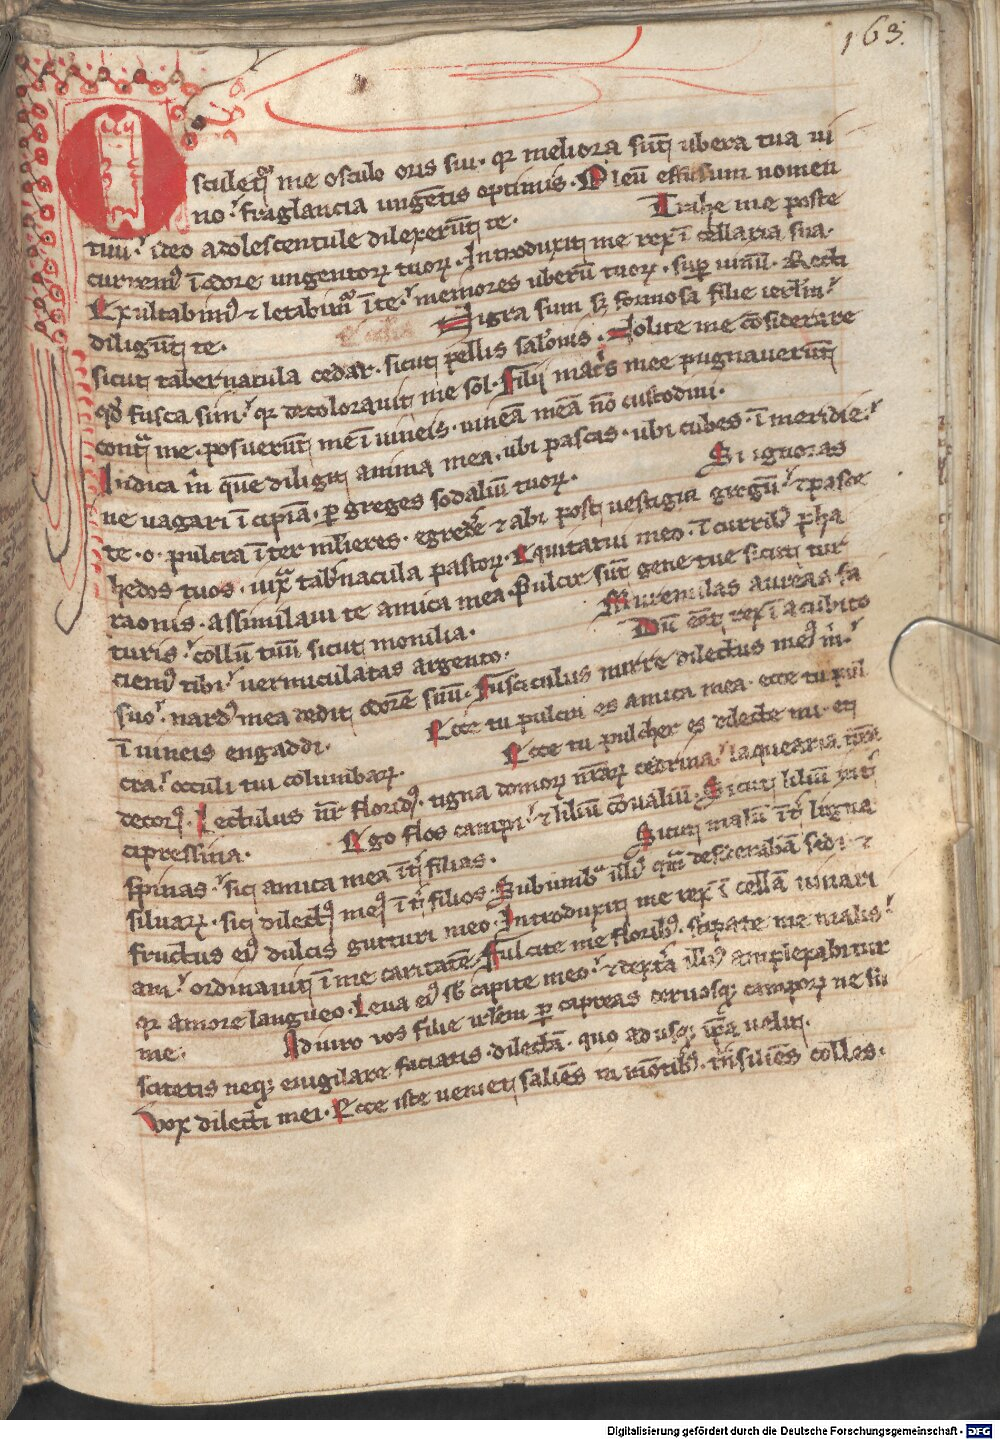 163.
Osculet᷑ me osculo oris sui. qꝛ meliora sūt ubera tua ui
no. fraglancia ungētis optimis. Oleū effusum nomen
tuū. ideo adolescentule dilexerūt te. Trahe me poste
curremꝰ ī odore ungentoꝝ tuoꝝ. Introduxit me rex ī cellaria sua.
Exultabimꝰ ⁊ letabimᷣ ī te. memores uberū tuoꝝ. suꝑ uinū. Recti
diligūt te. Nigra sum sꝫ formosa filie ierl̄m.
sicut tabernacula cedar. sicut pellis salōnis. Nolite me cōsiderare
qđ fusca sim. qꝛ decolorauit me sol. Filij mat̄s mee pugnauerūt
cont̄ me. posuerūt me ī uineis. uineā meā nō custodiui.
Indica m̄ quē diligit anima mea. ubi pascas. ubi cubes. ī meridie.
ne uagari ī cipiā. ꝑ greges sodaliū tuoꝝ. Si ignoras
te. o. pulcra īter ml̄ieres. egredēr ⁊ abi post uestigia gregū. ⁊ pasce
hedos tuos. iuxᵃ tab̄nacula pastoꝝ. Equitatui meo. ī currib; pha
raonis. assimilaui te amica mea. Pulcre sūt gene tue sicut tur
turis. collū tuū sicut monilia. Murenulas aureas fa
ciemꝰ tibi. uermiculatas argento. Dū eēt rex ī acubito
suo. nardꝰ mea dedit odorē suū. Fasciculus mirre dilectus meꝰ m̄.
ī uineis engaddi. Ecce tu pulcra es amica mea. ecce tu pul
cra. occuli tui columbaꝝ. Ecce tu pulcher es dilecte mi. et
decorꝰ. Lectulus nr̄ floridꝰ. tigna domoꝝ nr̄aꝝ cedrina. laquearia nr̄a
cipressina. Ego flos campi. ⁊ liliū cōualiū. Sicut liliū int̄
spinas. sic amica mea īt̄ filias. Sicut malū īt̄ ligna
siluaꝝ. sic dilectꝰ meꝰ īt̄ filios. Sub umbᵃ illiꝰ quē desiderabā sedi. ⁊
fructus eiꝰ dulcis gutturi meo. Introduxit me rex ī cellā uinari
am. ordinauit ī me caritatē. Fulcite me florib;. stipate me malis.
qꝛ amore langueo. Leua eiꝰ sb̄ capite meo. ⁊ dext̄a illiꝰ amplexabitur
me. Adiuro vos filie ierl̄em ꝑ capreas ceruosqꝫ campoꝝ ne su
scitetis neqꝫ euigilare faciatis. dilectā. quo adusqꝫ ip̄a uelit.
Vox dilecti mei. Ecce iste uenit saliēs in mōtib;. t̄nsiliēs colles.
Digitalisierung gefördert durch die Deutsche Forschungsgemeinschaft - DFG